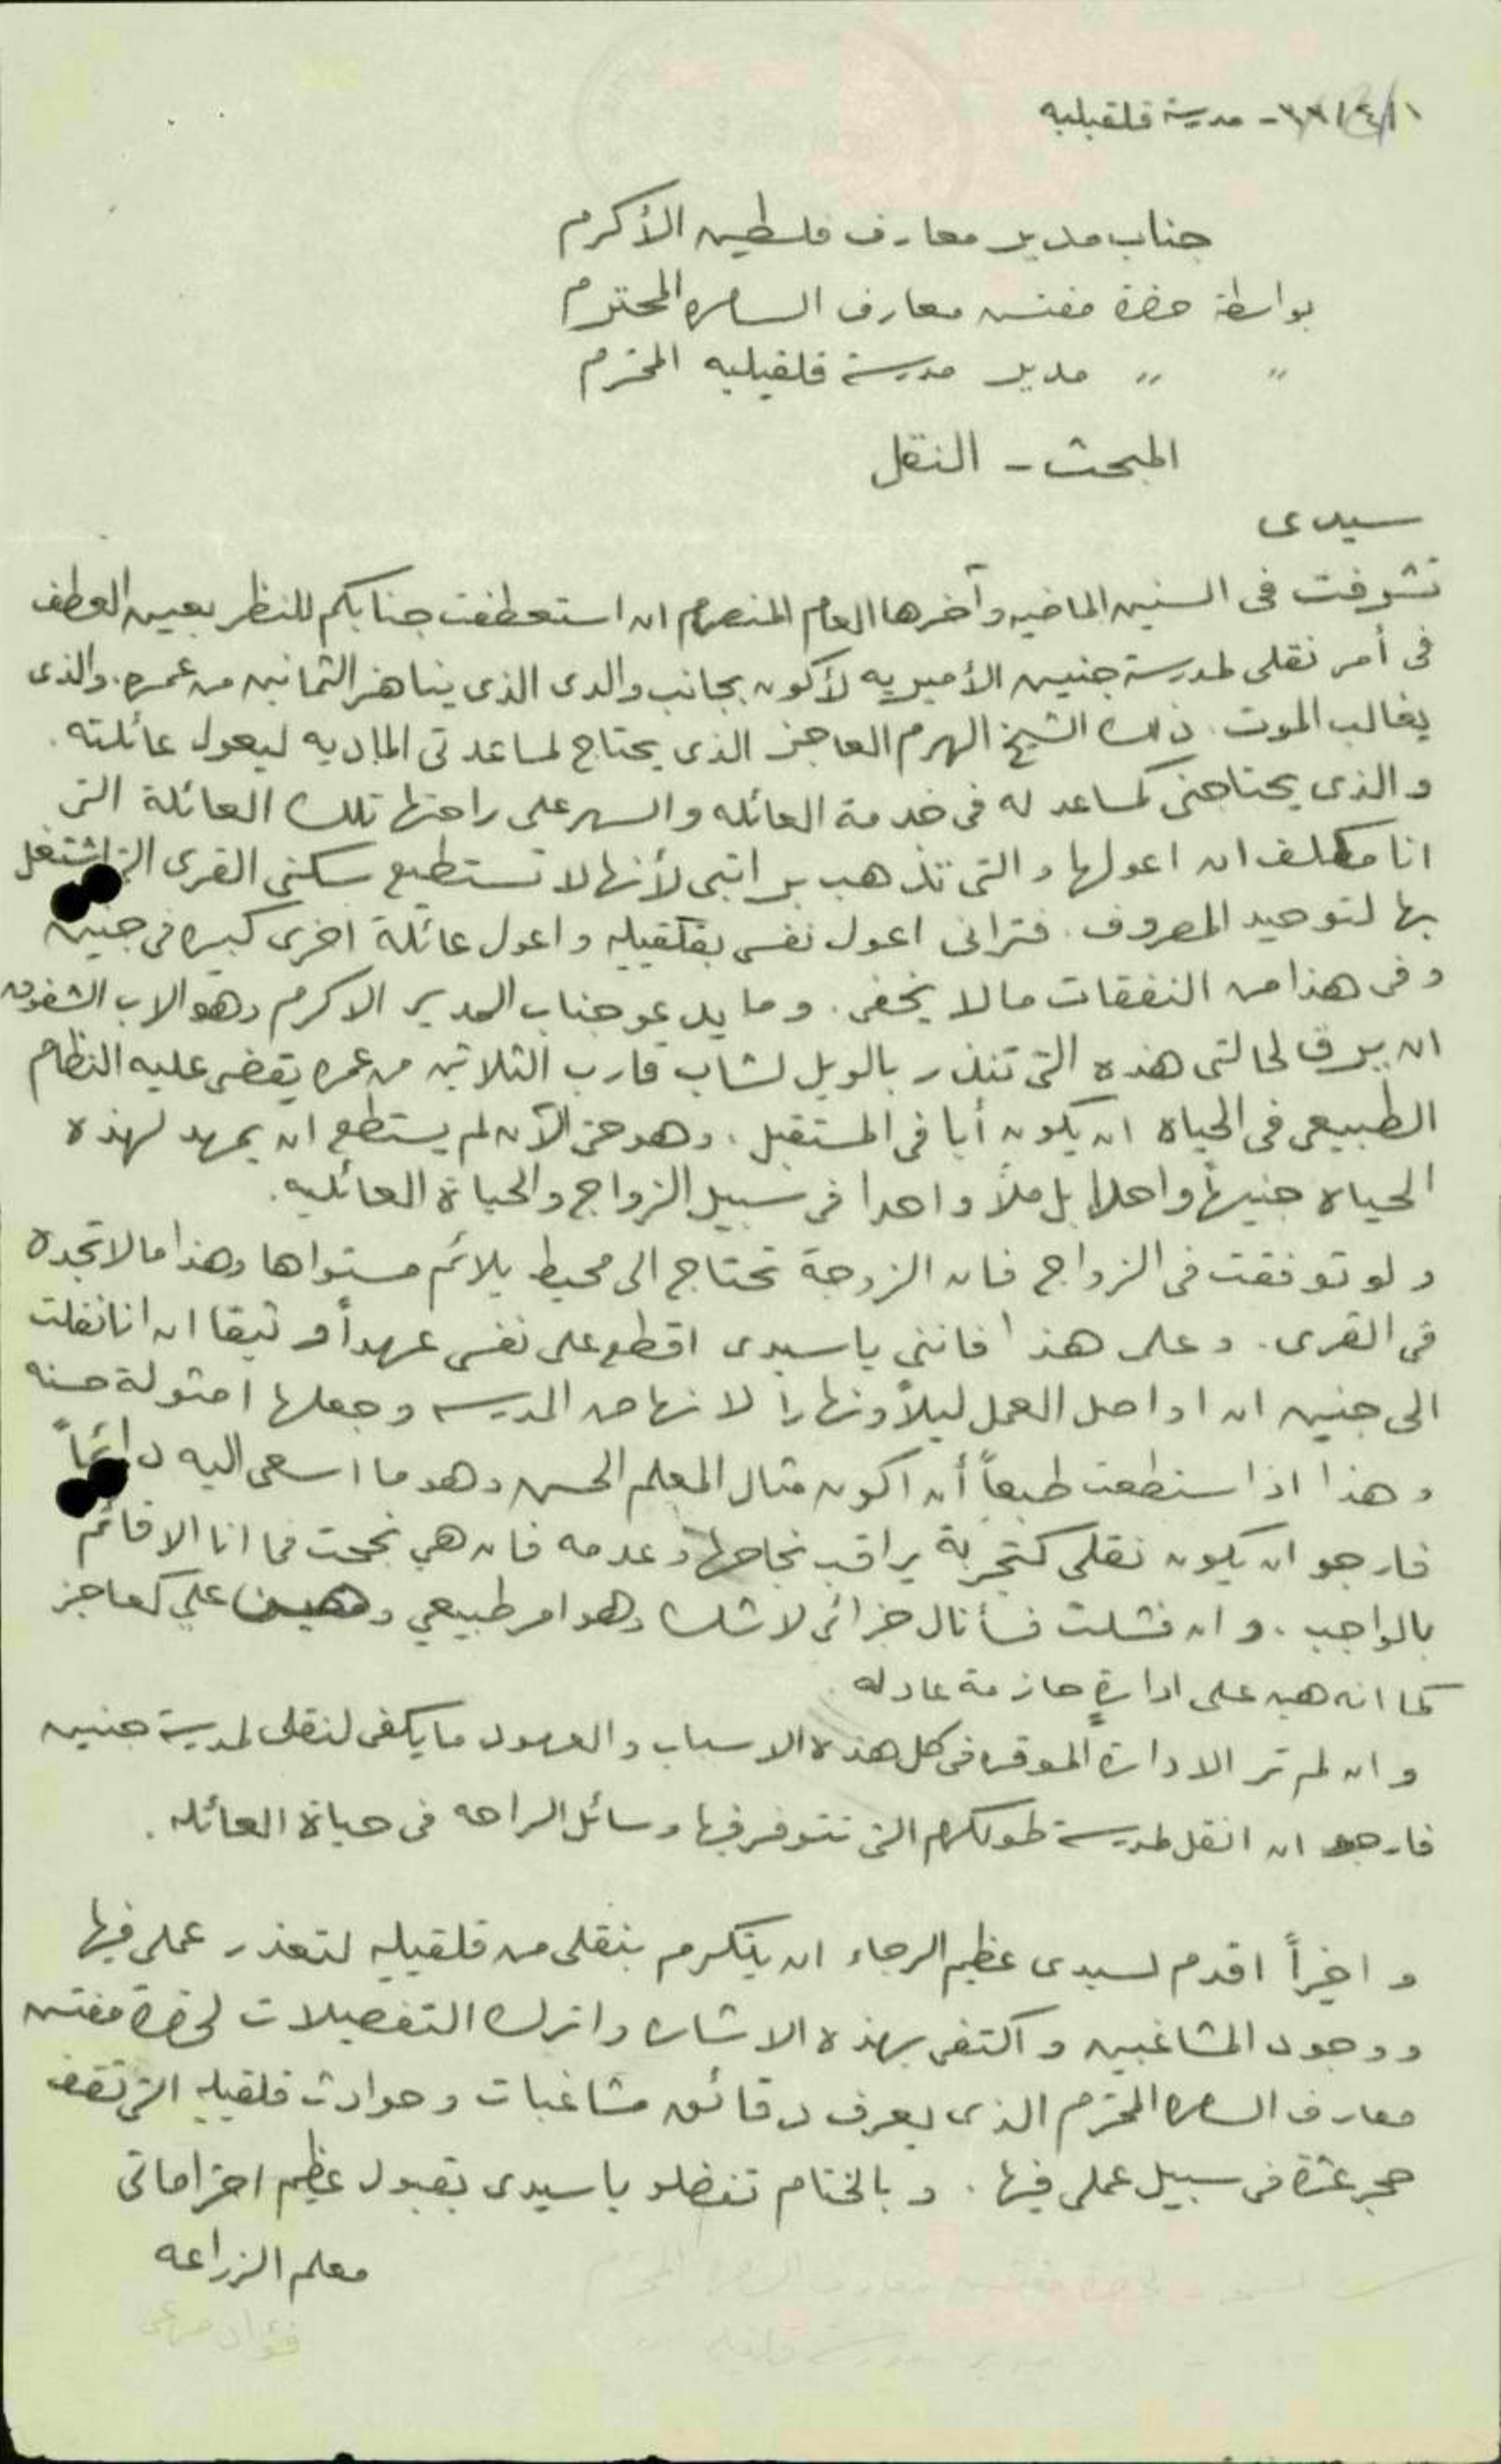 مدرسة قلقيليه
جناب مدير معارف فلسطين الأكرم
بواسطة حضرة مفتش معارف السامره المحترم
" " مدير مدرسة قلقيليه المحترم
المبحث - النقل
سيدى
تشرفت فى السنين الماضيه وآخرها العام المنصرم ان استعطفت جنابكم للنظر بعين العطف
فى أمر نقلى لمدرسة جنين الأميريه لأكون بجانب والدى الذى يناهز الثمانين من عمره. والذى
يغالب الموت. ذلك الشيخ الهرم العاجز الذى يحتاج لمساعدتى الماديه ليعول عائلته.
والذى يحتاجنى كمساعد له فى خدمة العائله والسهر على راحتها تلك العائلة التى
انا مكلف ان اعولها والتى تذهب براتبى لأنها لا تستطيع سكنى القرى التى اشتغل
بها لتوحيد المصروف. فترانى اعول نفسى بقلقيليه واعول عائلة اخرى كبيره فى جنين
وفى هذا من النفقات مالا يخفى. وما يدعو جناب المدير الاكرم وهو الاب الشفوق
ان يرق لحالتى هذه التى تنذر بالويل لشاب قارب الثلاثين من عمره يقضى عليه النظام
الطبيعى فى الحياة ان يكون أبا فى المستقبل. وهو حتى الآن لم يستطع ان يمهد لهذه
الحياه جنيهاً واحدا بل ملاً واحدا فى سبيل الزواج والحياة العائليه.
ولو توفقت فى الزواج فان الزوجة تحتاج الى محيط يلائم مستواها وهذا مالا تجده
فى القرى. وعلى هذا فاننى يا سيدى اقطع على نفسى عهداً وثيقا ان انا نقلت
الى جنين ان اواصل العمل ليلاً ونهارا لانهاض المدرسه وجعلها امثولة حسنه
وهذا اذا استطعت طبعاً أن اكون مثال المعلم الحسن وهو ما اسعى اليه دائماً
فارجو ان يكون نقلى كتجربة يراقب نجاحها وعدمه فان هي نجحت فما انا الا قائم
بالواجب. وان فشلت فسأنال جزائى لا شك وهو امر طبيعي وهين علي كعاجز
كما انه هين على ادارةٍ حازمة عادله
وان لم تر الادارة الموقره فى كل هذه الاسباب والعهود ما يكفى لنقلى لمدرسة جنين
فارجو ان انقل لمدرسة طولكرم التى تتوفر فيها وسائل الراحه فى حياة العائله.
واخيراً اقدم لسيدى عظيم الرجاء ان يتكرم بنقلى من قلقيليه لتعذر عملى فيها
ووجود المشاغبين واكتفى بهذه الاشاره واترك التفصيلات لحضرة مفتش
معارف السامره المحترم الذى يعرف دقائق مشاغبات وحوادث قلقيليه التى تقف
حجر عثرة فى سبيل عملى فيها. وبالختام تفضلو يا سيدى بقبول عظيم احتراماتى
معلم الزراعه